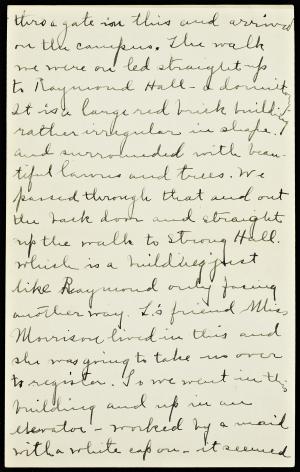 thro a gate in this and arrived
on the campus. The walk
we were on led straight up
to Raymond Hall - a dormitory
It is a large red brick building
rather irregular in shape.
and surrounded with beau-
tiful lawns and trees. We
passed through that and out
the back door and straight
up the walk to Strong Hall.
which is a building just
like Raymond only facing
another way. L's friend Miss
Morrison lived in this and
she was going to take us over
to register. So we went in this
building and up in an
elevator - worked by a maid
with a white cap on - it seemed